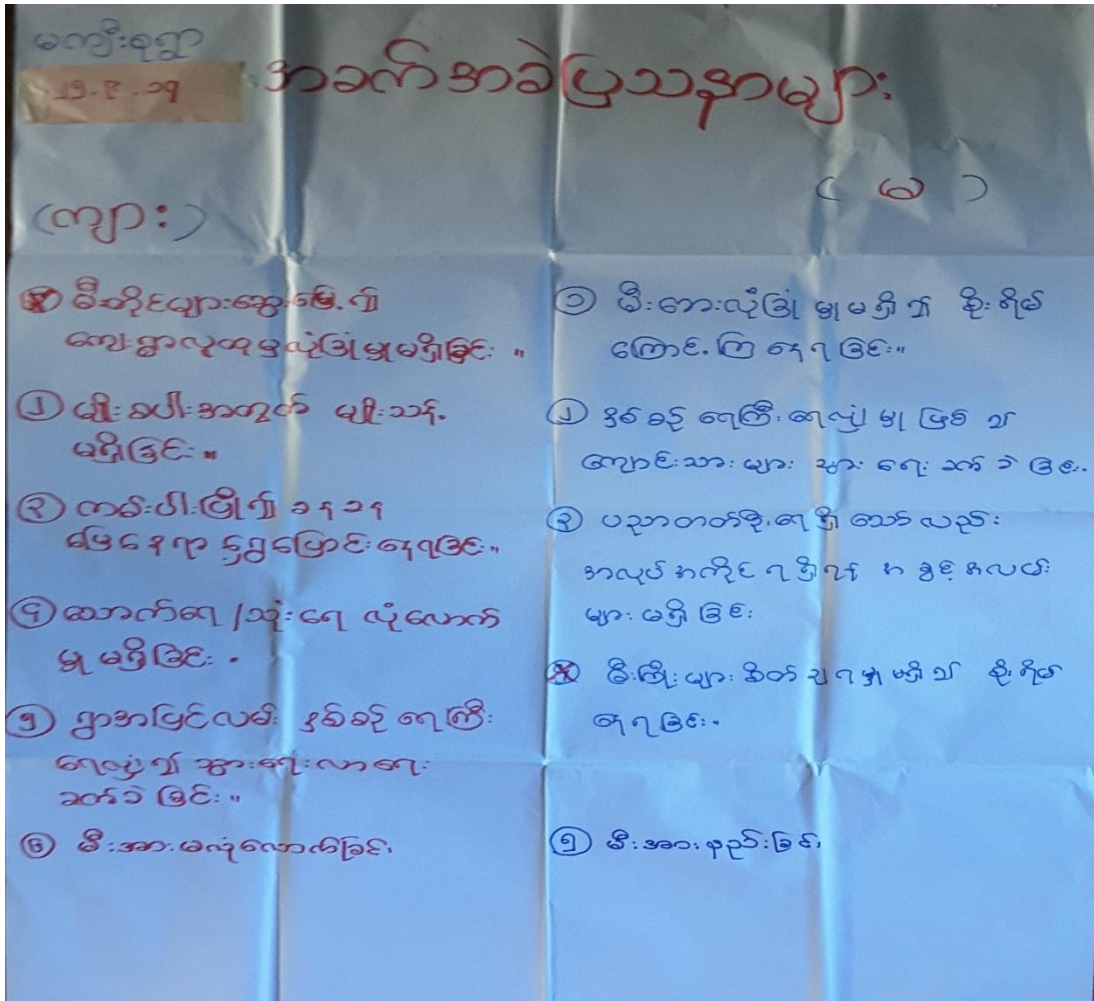 မကျီးစုရွာ
အခက်အခဲပြသနာများ
(ကျား)
မီးတိုင်များဆွေးမြေ့၍
ကျေးရွာလူထုမှလုံခြုံမှုမရှိခြင်း။
② မျိုးစပါးအတွက် မျိုးသန့်
မရှိခြင်း။
③ ကမ်းပါးပြို၍ ခနခန
မြေနေရာရွှေ့ပြောင်းနေရခြင်း။
④ သောက်ရေ/သုံးရေ လုံလောက်
မှု မရှိခြင်း။
⑤ ရွာအပြင်လမ်း နှစ်စဉ် ရေကြီး
ရေလျှံ၍ သွားရေးလာရေး
ခက်ခဲခြင်း။
⑥ မီးအားမလုံလောက်ခြင်း
(မ)
① မီးဘေးလုံခြုံမှုမရှိ၍ စိုးရိမ်
ကြောင့်ကြနေရခြင်း။
② နှစ်စဉ်ရေကြီးရေလျှံမှုဖြစ်၍
ကျောင်းသားများ သွားရေးခက်ခဲခြင်း။
③ ပညာတတ်မို့ ရေရှိသော်လည်း
အလုပ်အကိုင်ရရှိရန် အခွင့်အလမ်း
များ မရှိခြင်း
မီးကြိုးများစိတ်ချရမှုမရှိ၍ စိုးရိမ်
နေရခြင်း။
⑤ မီးအားနည်းခြင်း